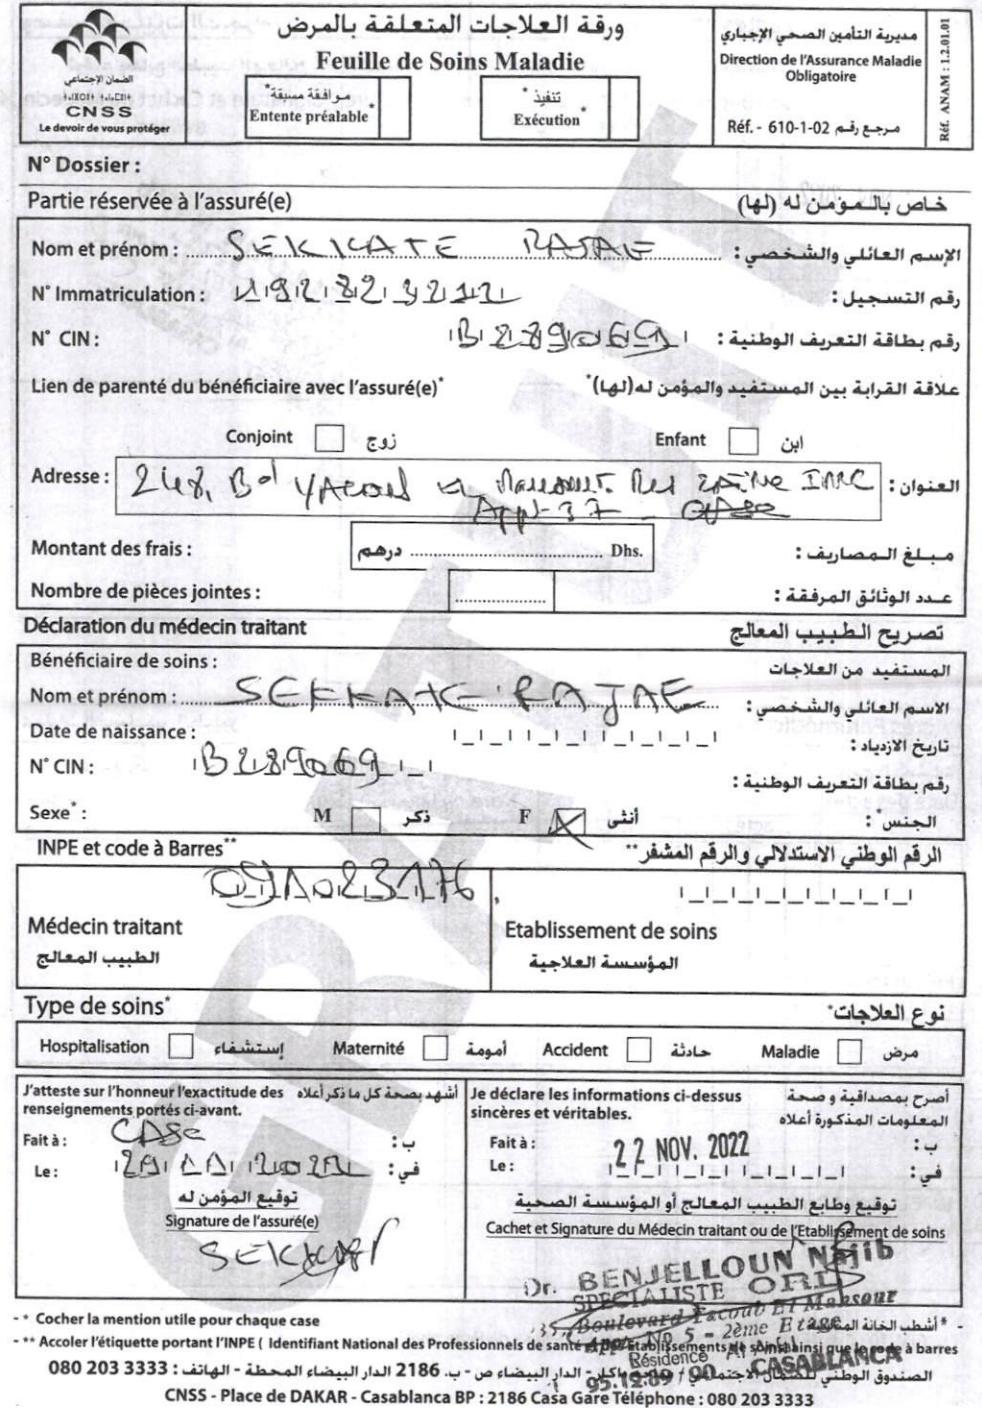 ورقة العلاجات المتعلقة بالمرض
Feuille de Soins Maladie
الضمان الإجتماعي
CNSS
Le devoir de vous protéger
موافقة مسبقة*
Entente préalable
تنفيذ*
Exécution
مديرية التأمين الصحي الإجباري
Direction de l'Assurance Maladie
Obligatoire
Réf. - 610-1-02 مرجع رقم
Réf. ANAM : 1.2.01.01
N° Dossier :
Partie réservée à l'assuré(e) خاص بالمؤمن له (لها)
Nom et prénom : SEKKATE RAJAE الإسم العائلي والشخصي :
N° Immatriculation : رقم التسجيل :
N° CIN : B289069 رقم بطاقة التعريف الوطنية :
Lien de parenté du bénéficiaire avec l'assuré(e)* علاقة القرابة بين المستفيد والمؤمن له(لها)*
Conjoint زوج Enfant ابن
Adresse : 248, Bd Yacoub El العنوان :
APP 37 - Casa
Montant des frais : درهم ........ Dhs. مبلغ المصاريف :
Nombre de pièces jointes : عدد الوثائق المرفقة :
Déclaration du médecin traitant تصريح الطبيب المعالج
Bénéficiaire de soins : المستفيد من العلاجات
Nom et prénom : SEKKATE RAJAE الاسم العائلي والشخصي :
Date de naissance : تاريخ الازدياد :
N° CIN : B289069 رقم بطاقة التعريف الوطنية :
Sexe* : M ذكر F أنثى الجنس* :
INPE et code à Barres** الرقم الوطني الاستدلالي والرقم المشفر**
091023176
Médecin traitant Etablissement de soins
الطبيب المعالج المؤسسة العلاجية
Type de soins* نوع العلاجات*
Hospitalisation إستشفاء Maternité أمومة Accident حادثة Maladie مرض
J'atteste sur l'honneur l'exactitude des أشهد بصحة كل ما ذكر أعلاه
renseignements portés ci-avant.
Fait à : CASA ب :
Le : في :
توقيع المؤمن له
Signature de l'assuré(e)
SEKKAT
Je déclare les informations ci-dessus أصرح بمصداقية و صحة
sincères et véritables. المعلومات المذكورة أعلاه
Fait à : ب :
Le : 22 NOV. 2022 في :
توقيع وطابع الطبيب المعالج أو المؤسسة الصحية
Cachet et Signature du Médecin traitant ou de l'Etablissement de soins
Dr. BENJELLOUN Najib
SPECIALISTE ORL
Boulevard Yacoub El Mansour
App. No 5 - 2ème Etage
Résidence
CASABLANCA
- * Cocher la mention utile pour chaque case
- ** Accoler l'étiquette portant l'INPE ( Identifiant National des Professionnels de santé Etablissements de soins) ainsi que le code à barres
الصندوق الوطني للضمان الاجتماعي - الدار البيضاء ص - ب. 2186 الدار البيضاء المحطة - الهاتف : 080 203 3333
CNSS - Place de DAKAR - Casablanca BP : 2186 Casa Gare Téléphone : 080 203 3333
GRATUIT